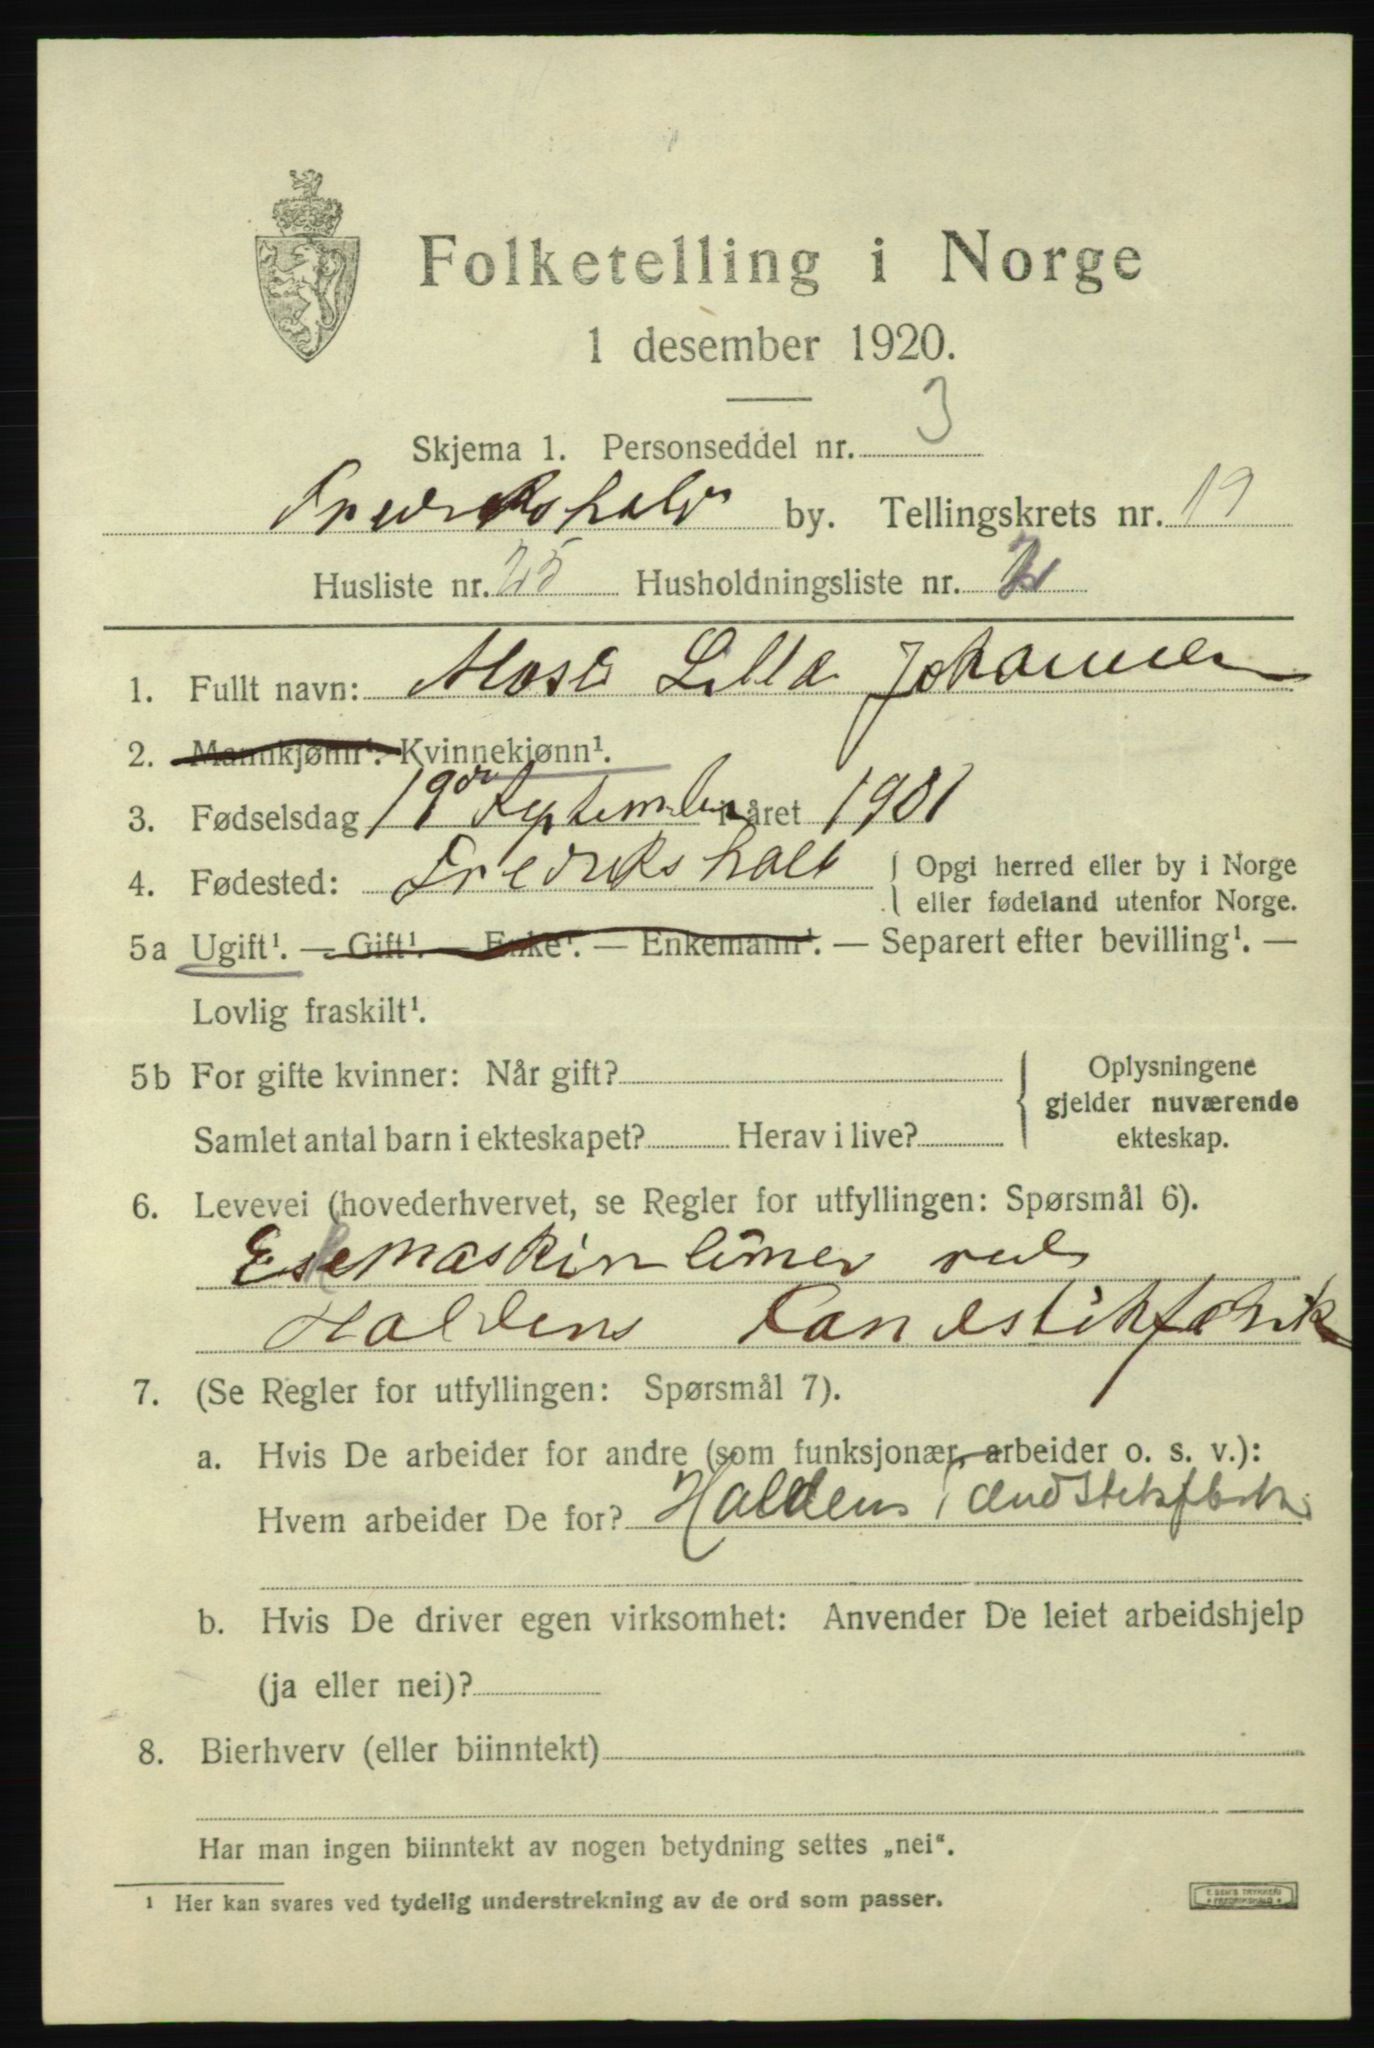 Folketelling i Norge
1 desember 1920.
Skjema 1. Personseddel nr. 3
Fredrikshald by. Tellingskrets nr. 19
Husliste nr. 25 Husholdningsliste nr.
1. Fullt navn: Lilla Johannes
2. Mannkjønn¹. Kvinnekjønn¹.
3. Fødselsdag 19de September i året 1901
4. Fødested: Fredrikshald { Opgi herred eller by i Norge
eller fødeland utenfor Norge.
5a Ugift¹. — Gift¹. — Enke¹. — Enkemann¹. — Separert efter bevilling¹. —
Lovlig fraskilt¹.
5b For gifte kvinner: Når gift? { Oplysningene
gjelder nuværende
Samlet antal barn i ekteskapet? Herav i live? ekteskap.
6. Levevei (hovederhvervet, se Regler for utfyllingen: Spørsmål 6).
Eskemaskinlimer ved
Haldens Tandstikfabrik
7. (Se Regler for utfyllingen: Spørsmål 7).
a. Hvis De arbeider for andre (som funksjonær, arbeider o. s. v.):
Hvem arbeider De for? Haldens Tandstikfbrk.
b. Hvis De driver egen virksomhet: Anvender De leiet arbeidshjelp
(ja eller nei)?
8. Bierhverv (eller biinntekt)
Har man ingen biinntekt av nogen betydning settes „nei“.
¹ Her kan svares ved tydelig understrekning av de ord som passer.
E. SEM'S TRYKKERI
FREDRIKSHALD